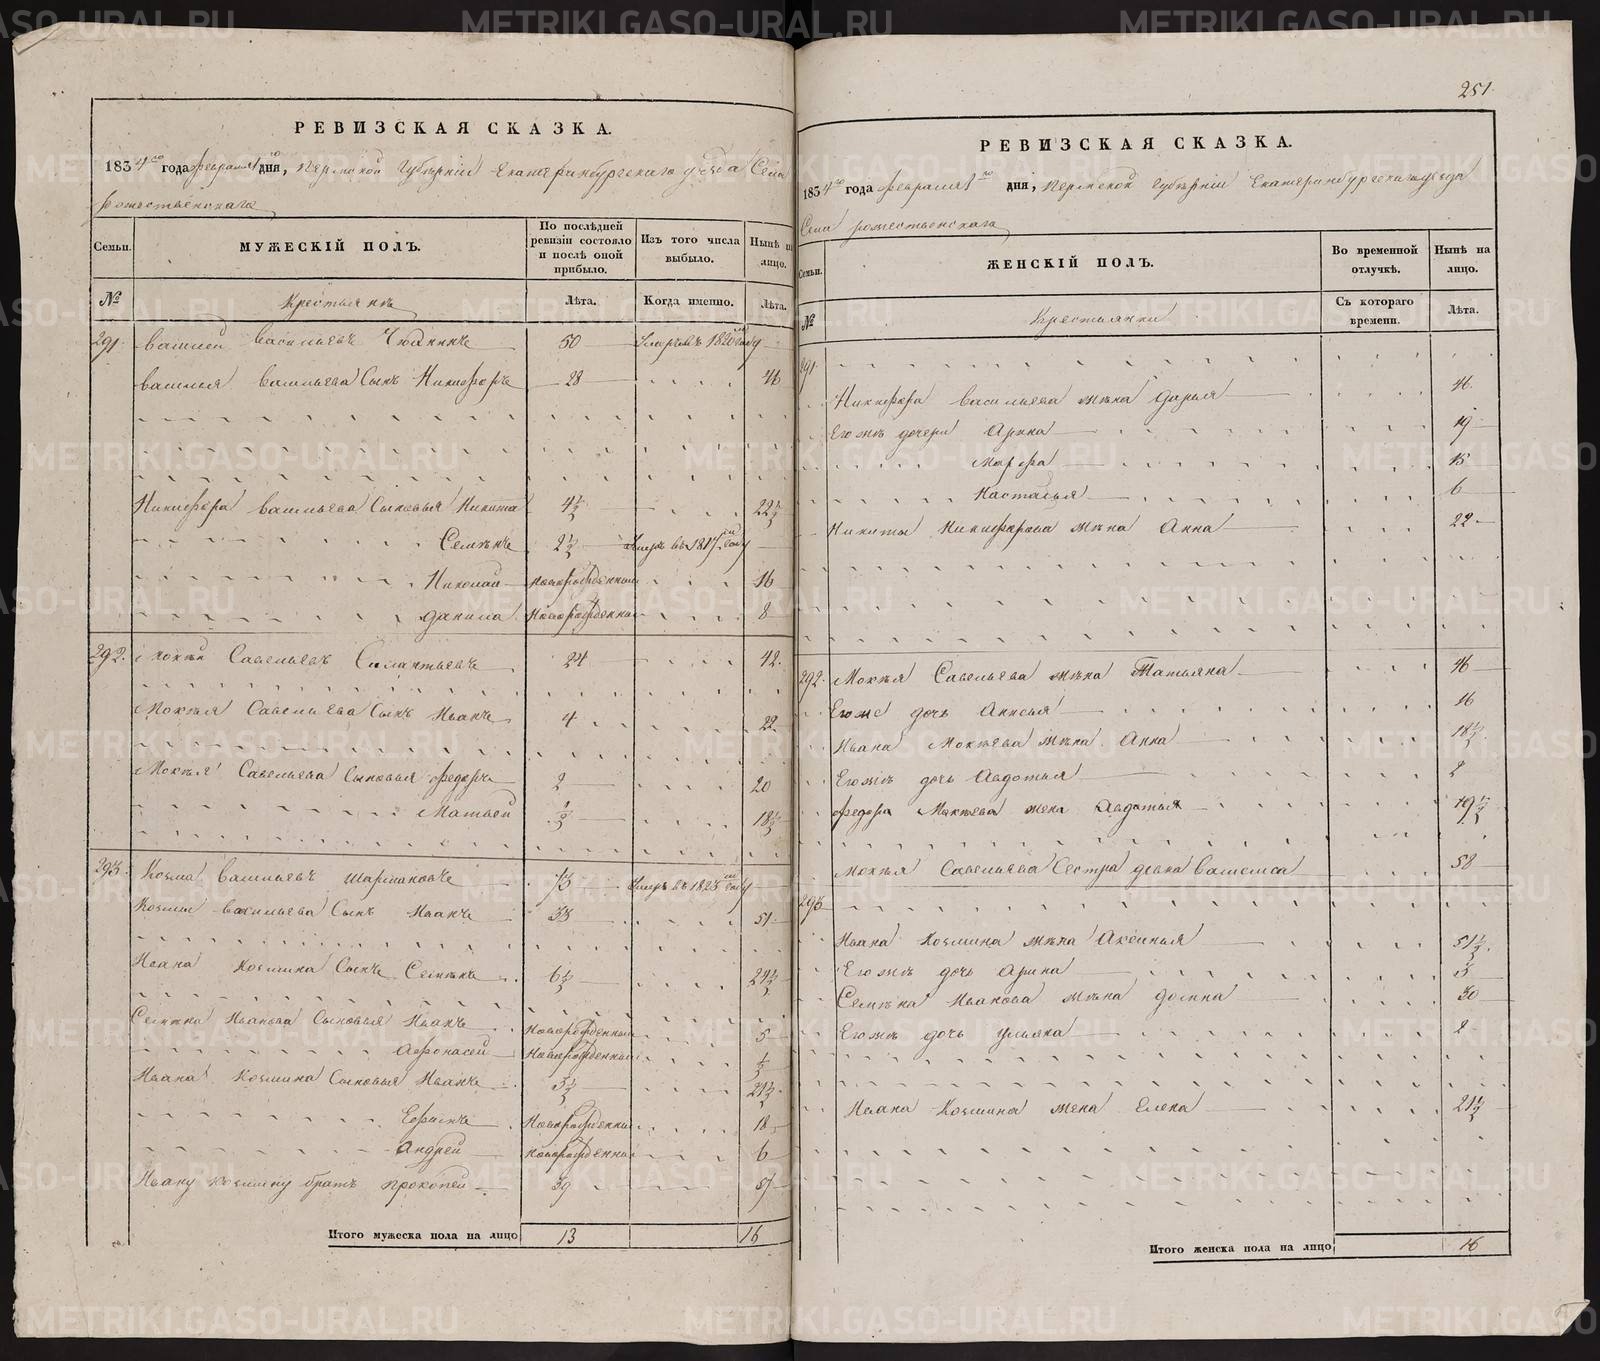 251.
РЕВИЗСКАЯ СКАЗКА.
1834го года февраля 1го дня, Пермской Губернiи Екатеринбургскаго уезда Села
рожественскаго
Семьи. МУЖЕСКIЙ ПОЛЪ. По послѣдней ревизiи состояло и послѣ оной прибыло. Изъ того числа выбыло. Нынѣ на лицо.
№ Крестьянѣ Лѣта. Когда именно. Лѣта.
291. Василей Васильевъ 50 Умеръ въ 1826 году
Василья Васильева Сынъ Никифоръ 28 46
Никифора Васильева Сыновья Никита 4½ 22½
Семенъ 2½ Умеръ въ 1817 году
Николай новорожденный 16
Данила новорожденный 8
292. Мокѣй Савельевъ Силантьевъ 24 42.
Мокѣя Савельева Сынъ Иванъ 4 22
Мокѣя Савельева Сыновья Федоръ 2 20
Матвей ½ 18½
293. Козма Васильевъ 73 Умеръ въ 1823 году
Козмы Васильева Сынъ Иванъ 33 51
Ивана Козмина Сынъ Семенъ 6½ 24½
Семена Иванова Сыновья Иванъ новорожденный 5
Афонасей новорожденный ½
Ивана Козмина Сыновья Иванъ 3½ 21½
Ефимъ новорожденный 18
Андрей новорожденный 6
Ивану Козмину братъ Прокопей 39 57
Итого мужеска пола на лицо 13 16
РЕВИЗСКАЯ СКАЗКА.
1834го года февраля 1го дня, Пермской Губернiи Екатеринбургскаго уезда
Села рожественскаго
Семьи. ЖЕНСКIЙ ПОЛЪ. Во временной отлучкѣ. Нынѣ на лицо.
№ Крестьянки Съ котораго времени. Лѣта.
291.
Никифора Васильева жена Дарья 46.
Его же дочери Арина 19
Марфа 15
Настасья 6
Никиты Никифорова жена Анна 22
292. Мокѣя Савельева жена Татьяна 46
Его же дочь Анисья 16
Ивана Мокѣева жена Анна 18½
Его же дочь Авдотья 2
Федора Мокѣева жена Авдотья 19½
Мокѣя Савельева Сестра девка Василиса 58
293
Ивана Козмина жена Аксинья 51½
Его же дочь Арина 3
Семена Иванова жена Домна 30
Его же дочь Ульяна 2
Ивана Козмина жена Елена 21½
Итого женска пола на лицо 16